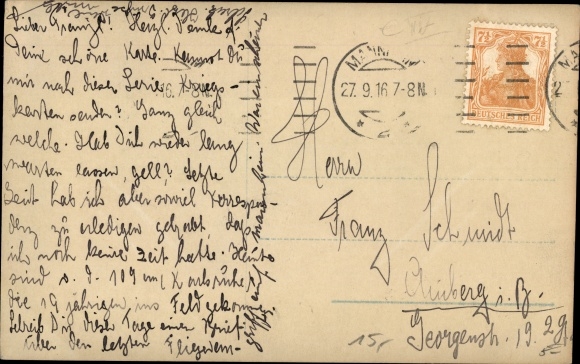 Lieber Franzl! Herzl. Dank f.
Deine schöne Karte. Kannst Du
mir nach dieser Serie Kriegs-
karten senden? Ganz gleich
welche. Hab Dich wieder lang
warten lassen, gell? Letzte
Zeit hab ich aber soviel Korrespon-
denz zu erledigen gehabt, daß
ich noch keine Zeit hatte. Heute
sind v. d. 109 em (Karlsruhe)
die 19 jährigen ins Feld gekom
Schreib Dir dieser Tage einen Brief
über den letzten Fliegerein-
MANN
27. 9. 16. 7-8 N.
7½ 7½
DEUTSCHES REICH
Herrn
Franz Schmidt
Amberg i. B.
Georgenstr. 19.
15,-
29
5-